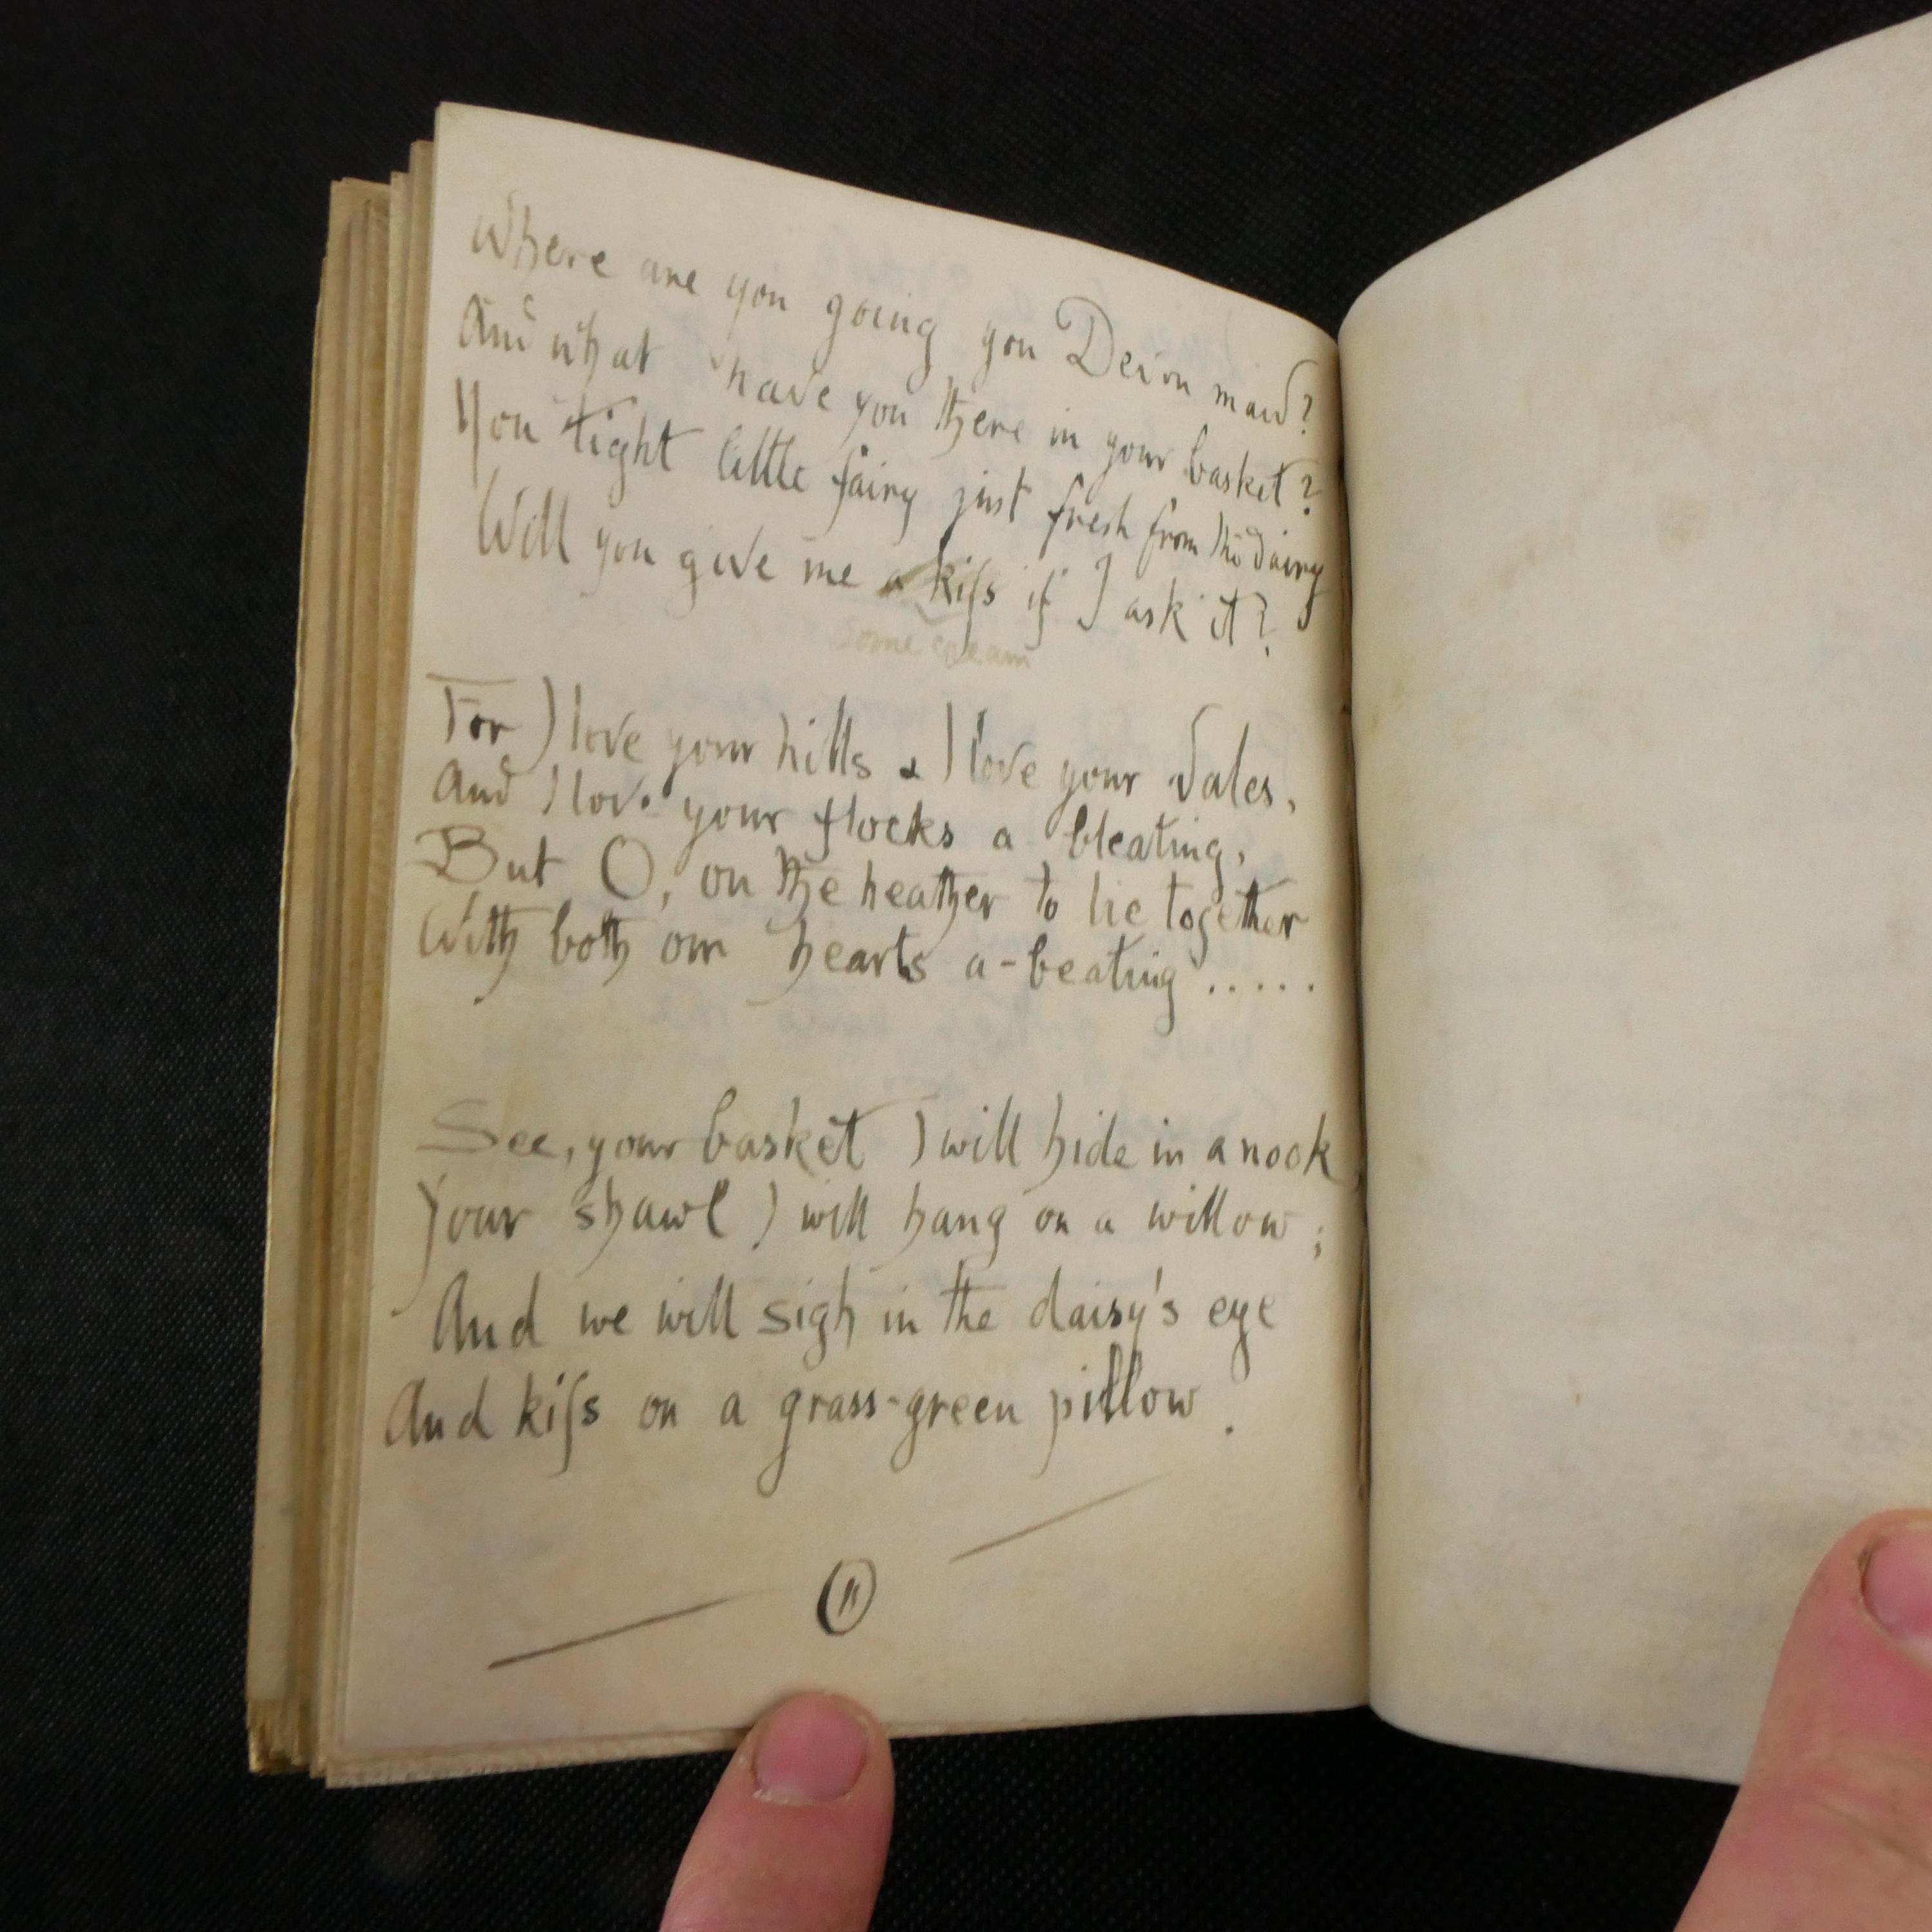 Where are you going you Devon maid?
And what have you there in your basket?
You tight little fairy just fresh from the dairy
Will you give me a kiſs if I ask it?
some cream
For I love your hills & I love your dales,
And I love your flocks a bleating,
But O, on the heather to lie together
With both our hearts a-beating .....
See, your basket I will hide in a nook
Your shawl I will hang on a willow;
And we will sigh in the daisy's eye
And kiſs on a grass-green pillow.
11